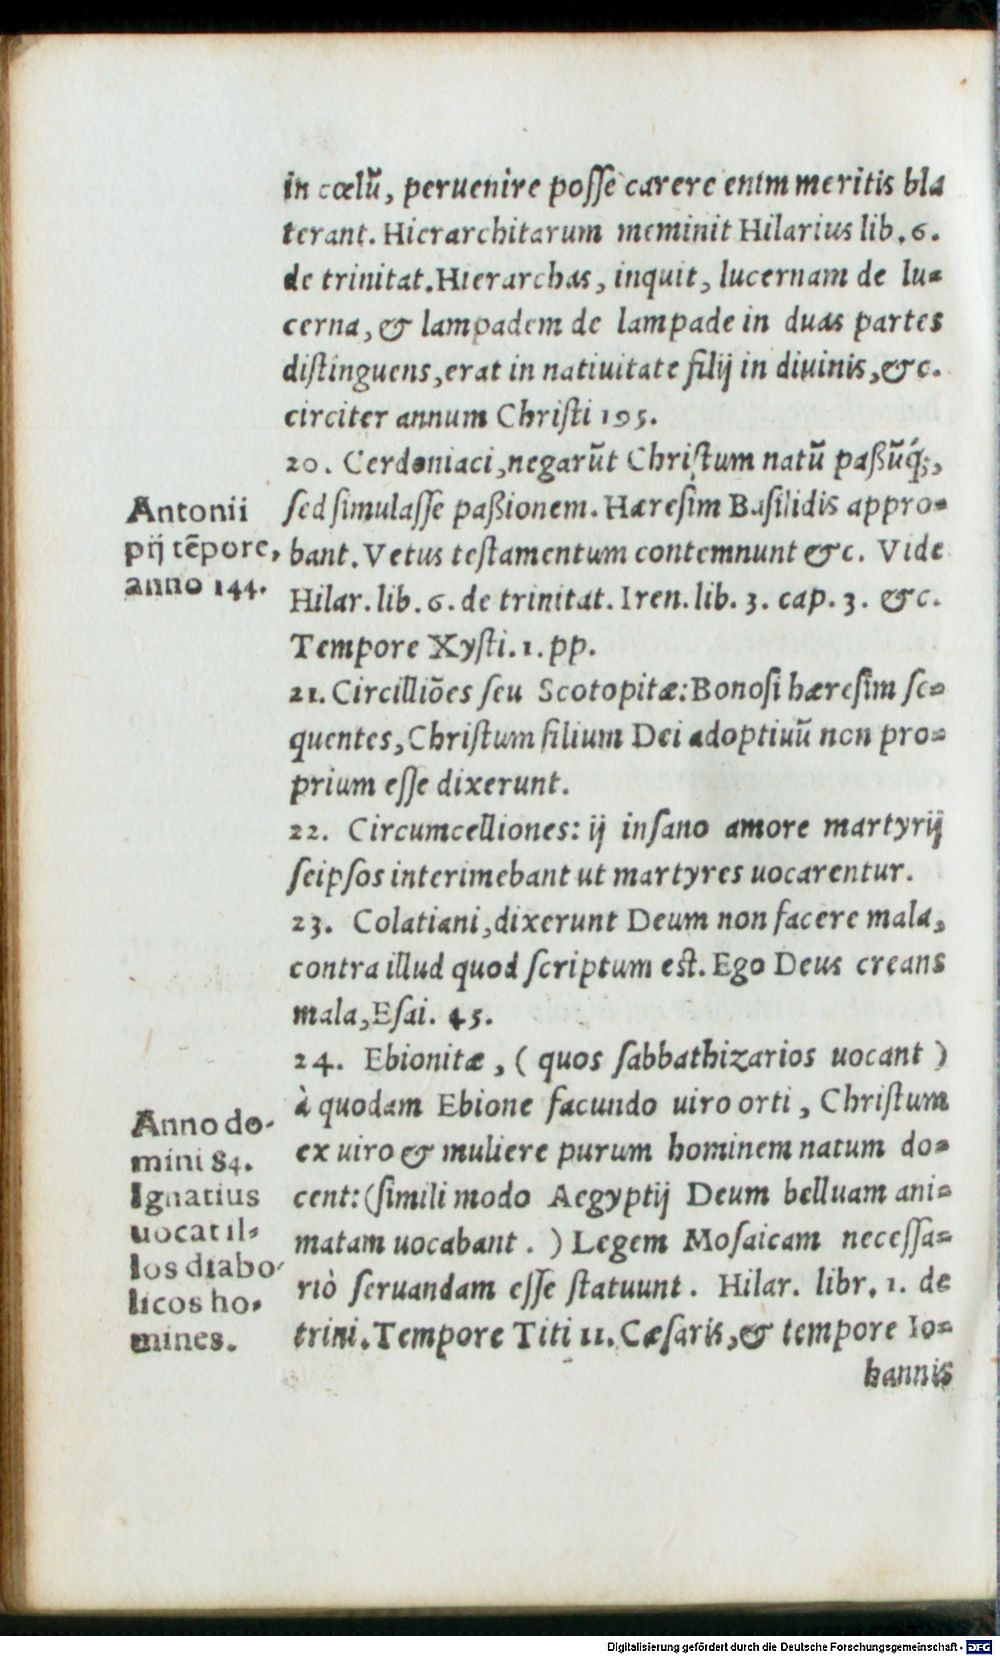 in cœlũ, peruenire posse carere enim meritis bla
terant. Hierarchitarum meminit Hilarius lib. 6.
de trinitat. Hierarchas, inquit, lucernam de lu=
cerna, & lampadem de lampade in duas partes
distinguens, erat in natiuitate filij in diuinis, &c.
circiter annum Christi 195.
20. Cerdoniaci, negarũt Christum natũ paßũq́;,
sed simulasse paßionem. Hæresim Basilidis appro=
bant. Vetus testamentum contemnunt &c. Vide
Hilar. lib. 6. de trinitat. Iren. lib. 3. cap. 3. &c.
Tempore Xysti. 1. pp.
Antonii
pij tẽpore,
anno 144.
21. Circilliões seu Scotopitæ: Bonosi hæresim se=
quentes, Christum filium Dei adoptiuũ non pro=
prium esse dixerunt.
22. Circumcelliones: ij insano amore martyrij
seipsos interimebant ut martyres uocarentur.
23. Colatiani, dixerunt Deum non facere mala,
contra illud quod scriptum est. Ego Deus creans
mala, Esai. 45.
24. Ebionitæ, ( quos sabbathizarios uocant )
à quodam Ebione facundo uiro orti, Christum
ex uiro & muliere purum hominem natum do=
cent: (simili modo Aegyptij Deum belluam ani=
matam uocabant. ) Legem Mosaicam necessa=
riò seruandam esse statuunt. Hilar. libr. 1. de
trini. Tempore Titi 11. Cæsaris, & tempore Io=
hannis
Anno do-
mini 84.
Ignatius
uocat il-
los diabo-
licos ho-
mines.
Digitalisierung gefördert durch die Deutsche Forschungsgemeinschaft - DFG